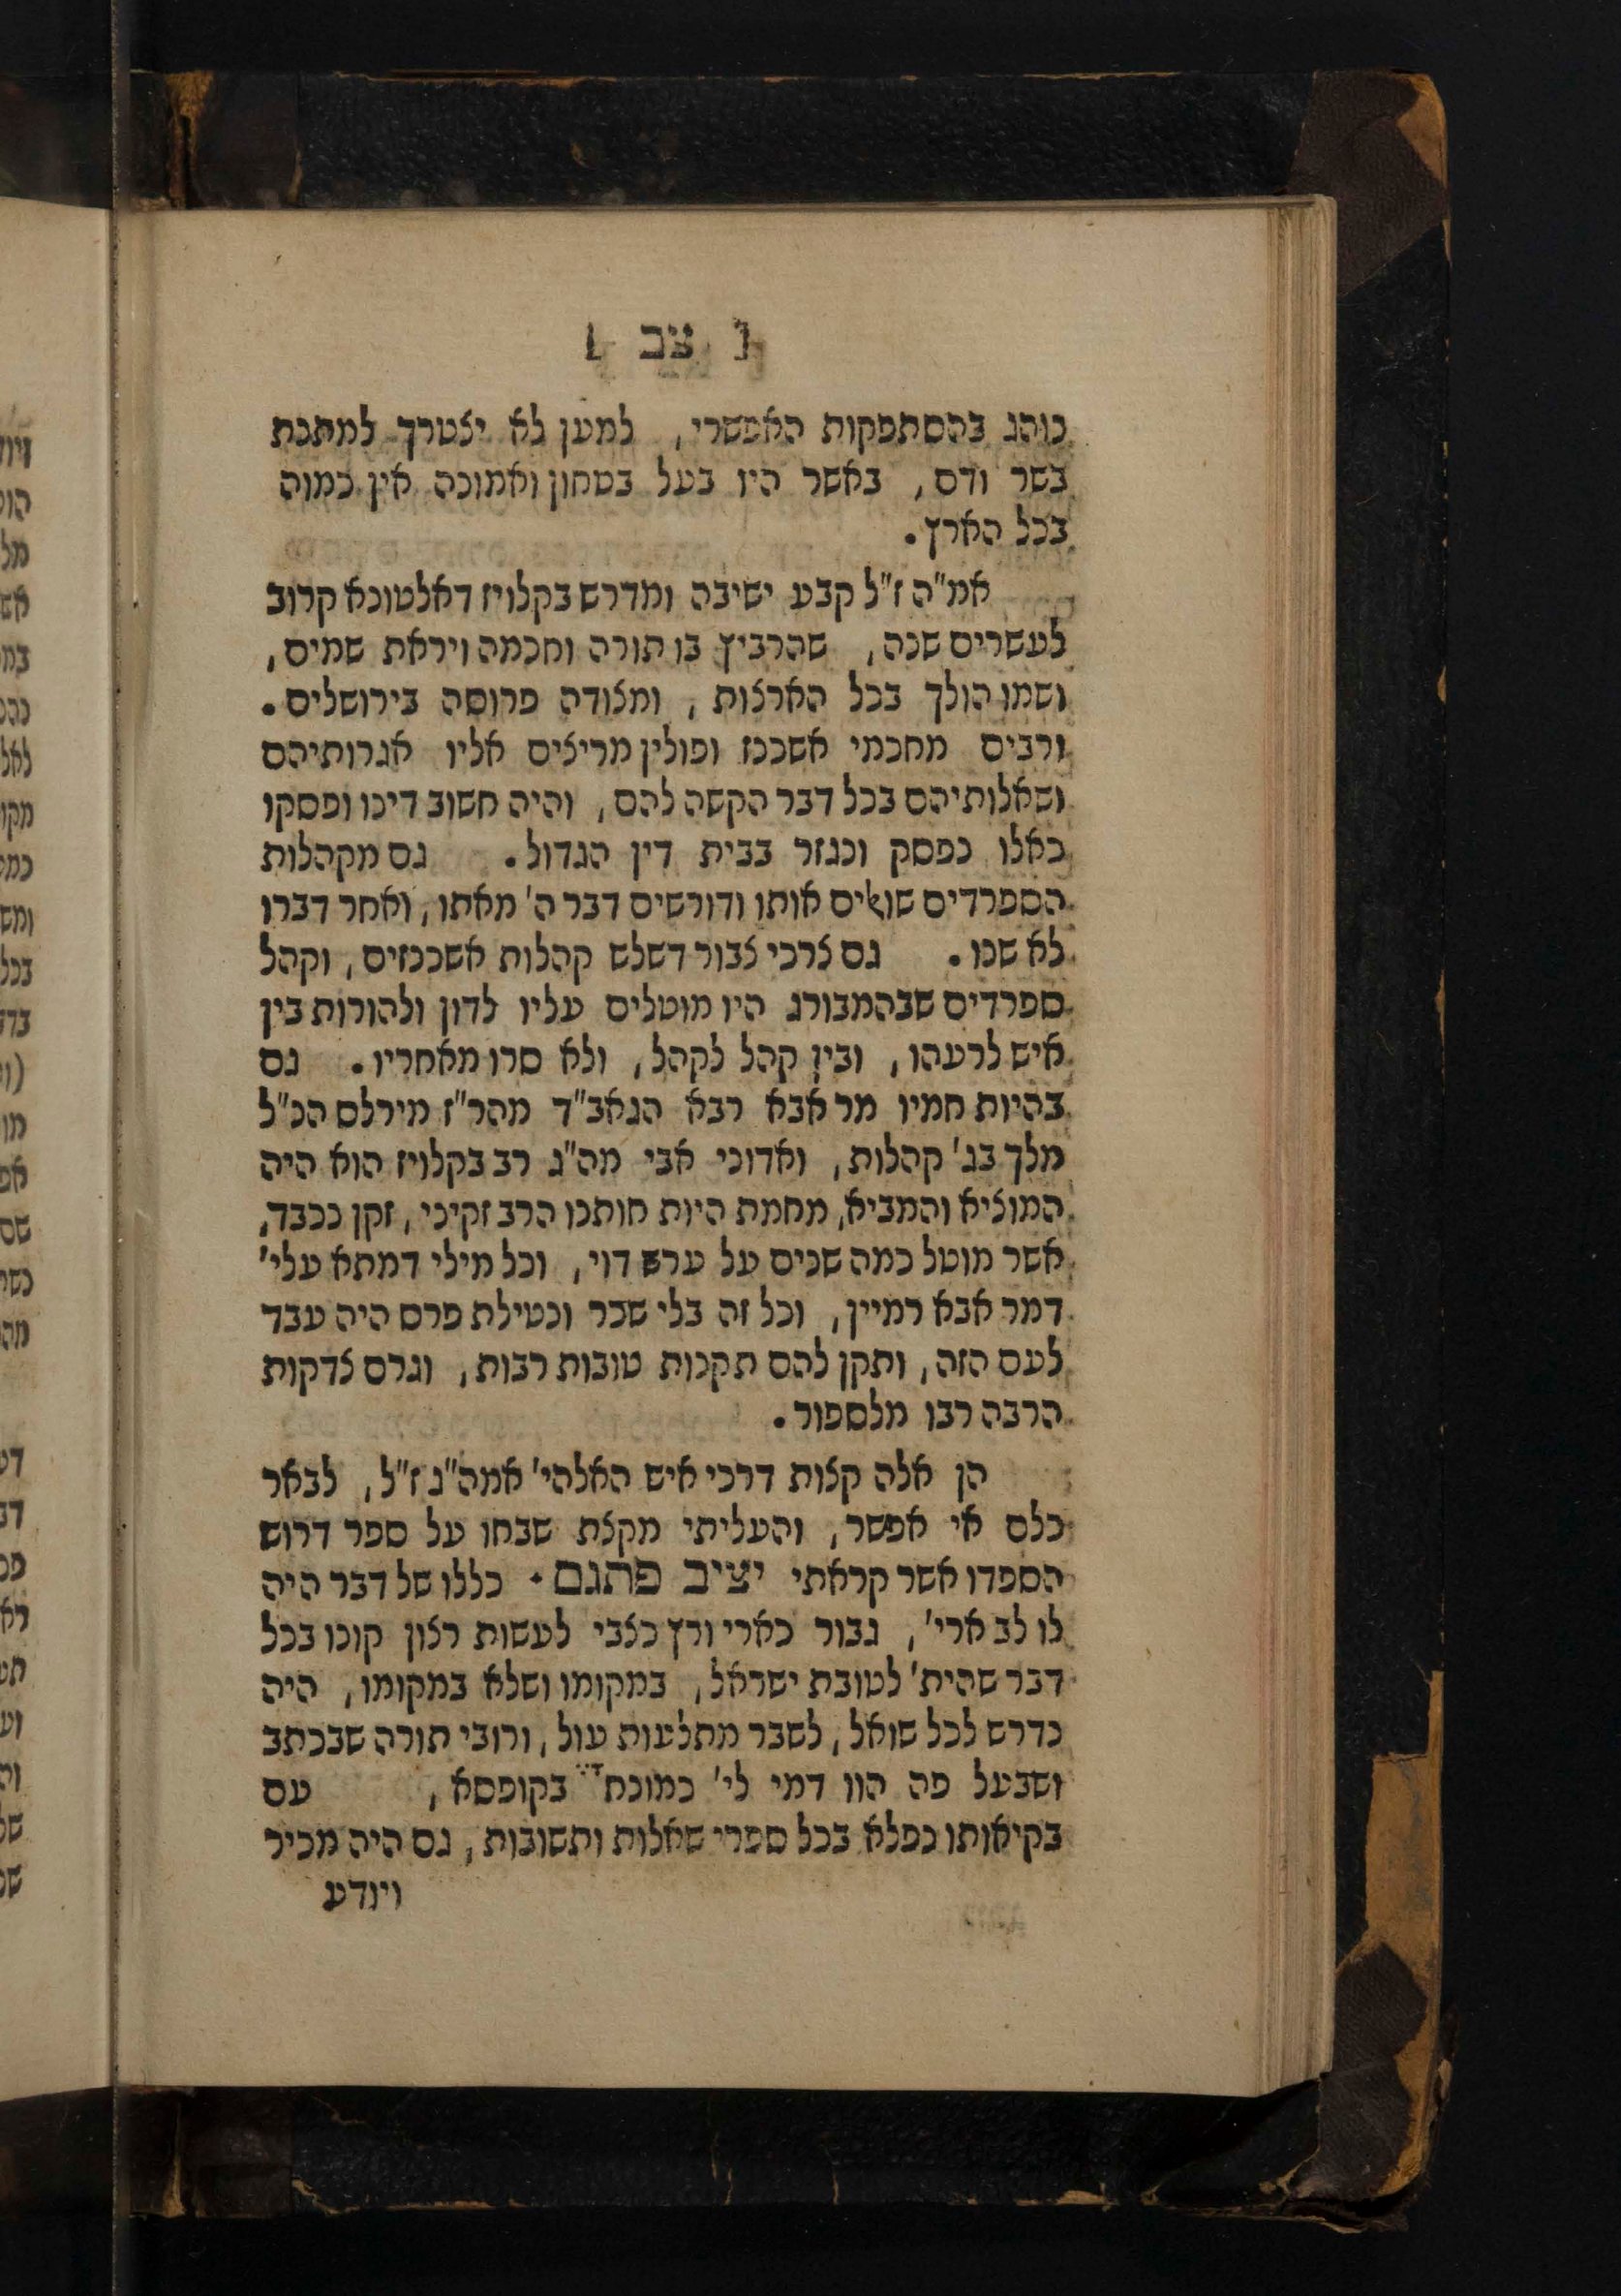 [ צב ]
נוהג בהסתפקות האפשרי, למען לא יצטרך למתנת
בשר ודם, באשר היו בעל בטחון ואמונה אין כמוה
בכל הארץ.
אמ"ה ז"ל קבע ישיבה ומדרש בקלויז דאלטונא קרוב
לעשרים שנה, שהרביץ בו תורה וחכמה ויראת שמים,
ושמו הולך בכל הארצות, ומצודה פרוסה בירושלים.
ורבים מחכמי אשכנז ופולין מריצים אליו אגרותיהם
ושאלותיהם בכל דבר הקשה להם, והיה חשוב דינו ופסקו
כאלו נפסק ונגזר בבית דין הגדול. גם מקהלות
הספרדים שואלים אותו ודורשים דבר ה' מאתו, ואחר דברו
לא שנו. גם צרכי צבור דשלש קהלות אשכנזים, וקהל
ספרדים שבהמבורג היו מוטלים עליו לדון ולהורות בין
איש לרעהו, ובין קהל לקהל, ולא סרו מאחריו. גם
בהיות חמיו מר אבא רבא הגאב"ד מהר"ז מירלס הנ"ל
מלך בג' קהלות, ואדוני אבי מה"ג רב בקלויז הוא היה
המוציא והמביא, מחמת היות חותנו הרב זקיני, זקן ונכבד,
אשר מוטל כמה שנים על ערש דוי, וכל מילי דמתא עלי'
דמר אבא רמיין, וכל זה בלי שכר ונטילת פרס היה עבד
לעם הזה, ותקן להם תקנות טובות רבות, וגרם צדקות
הרבה רבו מלספור.
הן אלה קצות דרכי איש האלהי' אמה"ג ז"ל, לבאר
כלם אי אפשר, והעליתי מקצת שבחו על ספר דרוש
הספדו אשר קראתי יציב פתגם. כללו של דבר היה
לו לב ארי', גבור כארי ורץ כצבי לעשות רצון קונו בכל
דבר שהית' לטובת ישראל, במקומו ושלא במקומו, היה
נדרש לכל שואל, לשבר מתלעות עול, ורובי תורה שבכתב
ושבעל פה הוו דמי לי' כמונח בקופסא, עם
בקיאותו נפלא בכל ספרי שאלות ותשובות, גם היה מכיר
ויודע